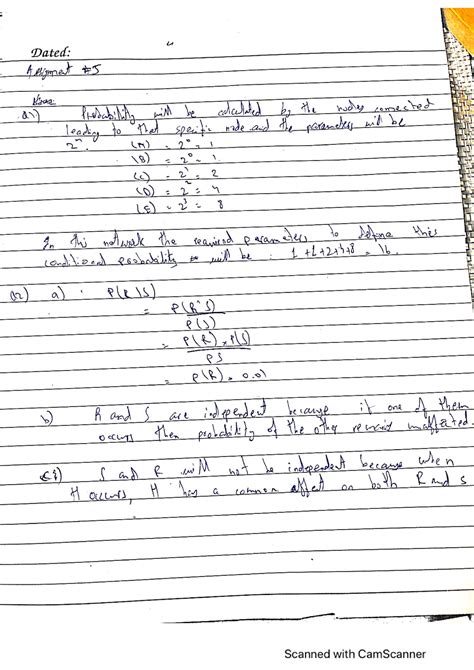 Dated:
Assignment #5
Q1) Probability will be calculated by the nodes connected
leading to that specific node and the parameters will be
2^n (A) = 2^0 = 1
(B) = 2^0 = 1
(C) = 2^1 = 2
(D) = 2^2 = 4
(E) = 2^3 = 8
In this network the required parameters to define this
conditional probability will be : 1+1+2+4+8 = 16.
Q2) a) P(R|S)
= P(R^S)
P(S)
= P(R) . P(S)
PS
= P(R) = 0.01
b) R and S are independent because if one of them
occurs then probability of the other remains unaffected.
c) i) S and R will not be independent because when
H occurs, H has a common affect on both R and S
Scanned with CamScanner